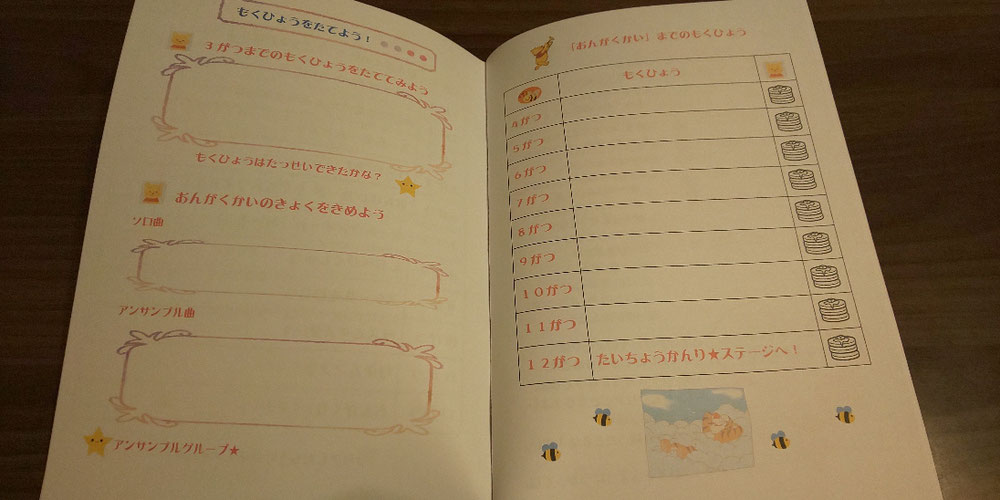 もくひょうをたてよう!
3がつまでのもくひょうをたててみよう
もくひょうはたっせいできたかな?
おんがくかいのきょくをきめよう
ソロ曲
アンサンブル曲
アンサンブルグループ★
「おんがくかい」までのもくひょう
もくひょう
4がつ
5がつ
6がつ
7がつ
8がつ
9がつ
10がつ
11がつ
12がつ たいちょうかんり★ステージへ!